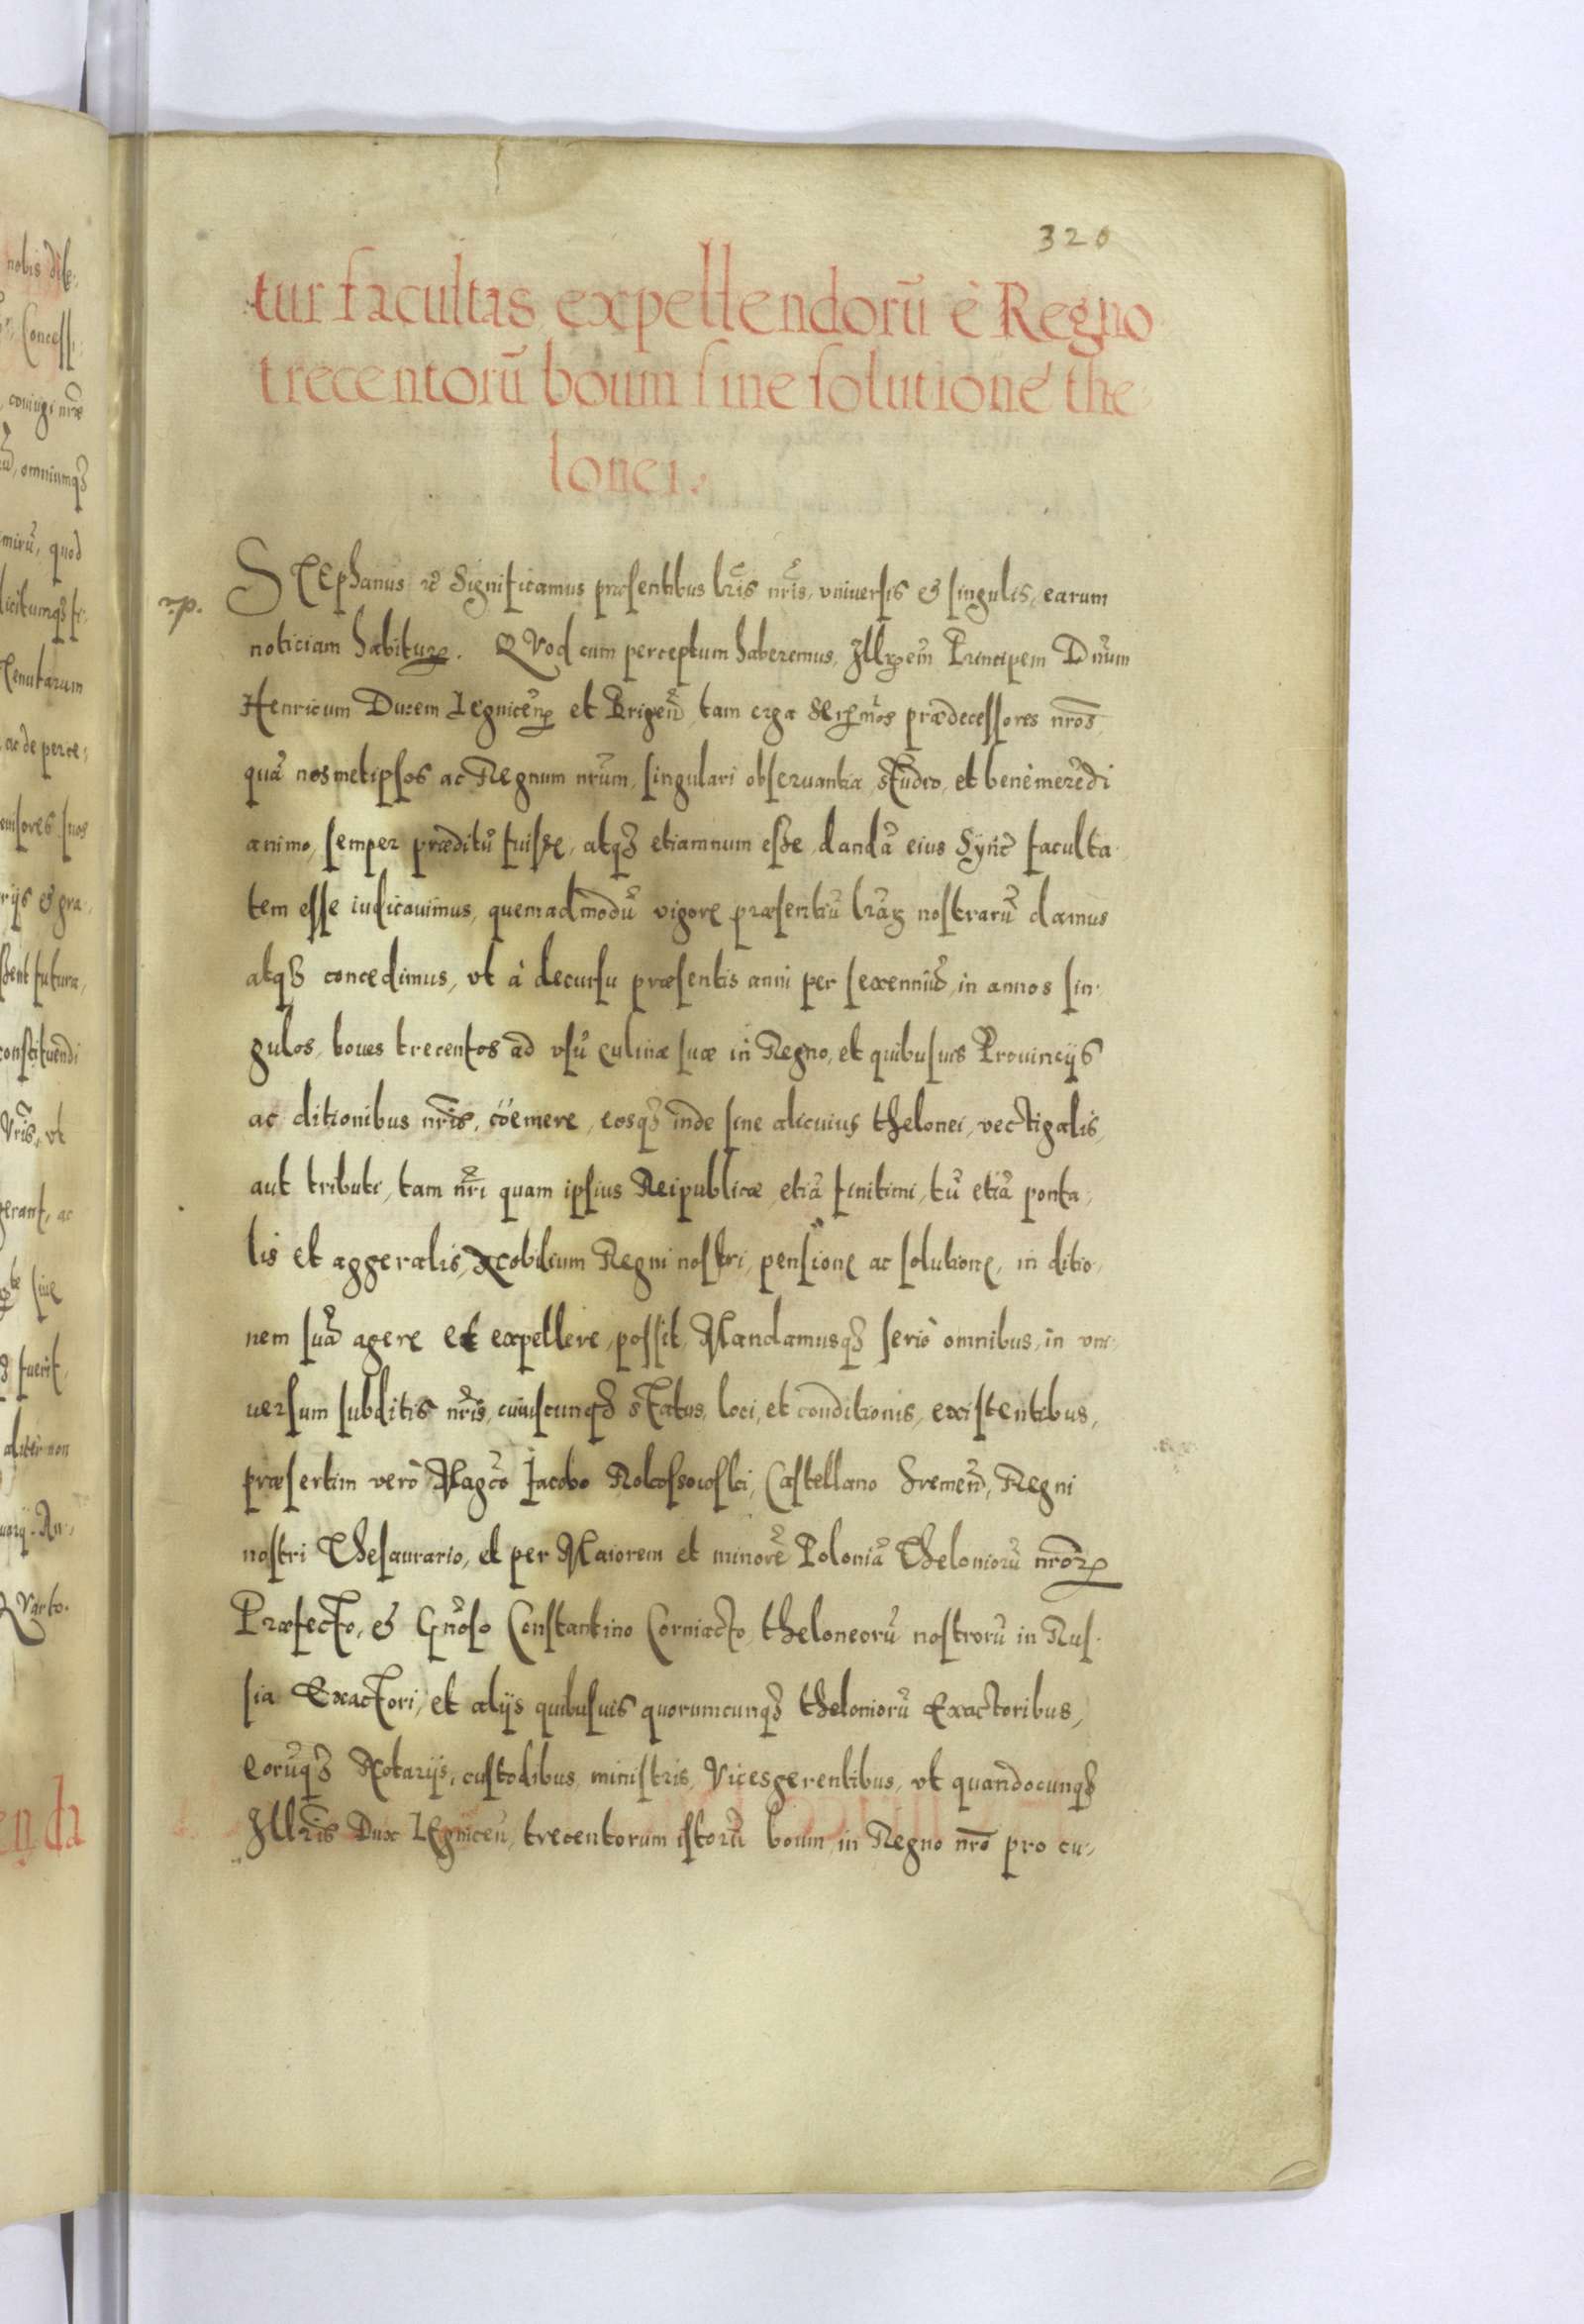 320
tur facultas expellendorũ è Regno
trecentorũ boum sine solutione the
lonei.
STEphanus &c Significamus præsentibus lr̃is nr̃is, vniuersis & singulis, earum
noticiam habituro⁊. QVod cum perceptum haberemus, Illr̃em Principem Dn̄um
Henricum Ducem Legnicen̄ et Brigen̄, tam erga Ser̃mos prædecessores nr̃os,
quā nosmetipsos ac Regnum nr̃um, singulari obseruantia, studio, et benè merēdi
animo, semper præditū fuisse, atq3 etiamnum esse, dandā eius Syñc faculta-
tem esse iudicauimus, quemadmodū vigore præsentiū lr̃aꝝ nostrarū damus
atq3 concedimus, vt à decursu præsentis anni per sexenniū, in annos sin-
gulos, boues trecentos ad vsū culinæ suæ in Regno, et quibusuis Prouincijs
ac ditionibus nr̃is, cöemere, eosq3 inde sine alicuius thelonei, vectigalis,
aut tributi, tam nr̃i quam ipsius Reipublicæ, etiā finitimi, tū etiā ponta-
lis et aggeralis, Nobilium Regni nostri, pensione ac solutione, in ditio-
nem suā agere et expellere, possit, Mandamusq3 seriò omnibus, in vni-
uersum subditis nr̃is, cuiuscunq3 status, loci, et conditionis, existentibus,
præsertim verò Magc̃o Iacobo Rokossowski, Castellano Sremen̄, Regni
nostri Thesaurario, et per Maiorem et minorē Poloniā Theloniorū nr̃oꝝ
Præfecto, & Gn̄oso Constantino Corniacto, theloneorū nostrorū in Rus-
sia Exactori, et alijs quibusuis quorumcunq3 theloniorū Exactoribus,
eorūq3 Notarijs, custodibus, ministris, Vicesgerentibus, vt quandocunq3
Illr̃is Dux Legnicen̄, trecentorum istorū boum, in Regno nr̃o pro cu-